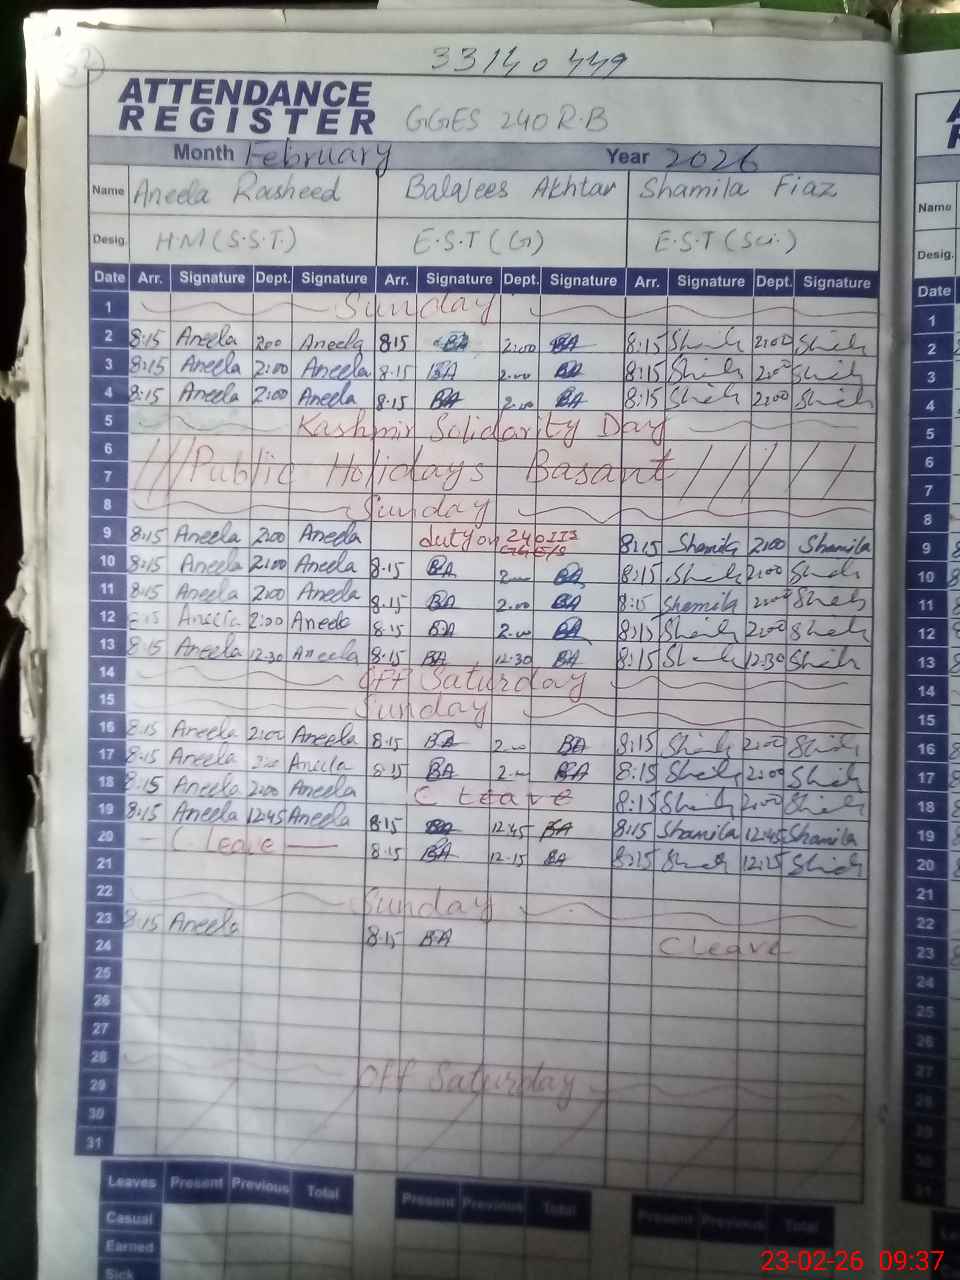 33140449
ATTENDANCE
REGISTER GGES 240 R.B
Month February Year 2026
Name Aneela Rasheed Balqees Akhtar Shamila Fiaz
Desig. H.M (S.S.T.) E.S.T (G) E.S.T (Sci.)
Date Arr. Signature Dept. Signature Arr. Signature Dept. Signature Arr. Signature Dept. Signature
1 Sunday
2 8:15 Aneela 200 Aneela 8:15 BA 2:00 BA 8:15 2:00
3 8:15 Aneela 2:00 Aneela 8.15 BA 2.00 BA 8:15 2:00
4 8:15 Aneela 2:00 Aneela 8.15 BA 2.00 BA 8:15 2:00
5 Kashmir Solidarity Day
6
7 Public Holidays Basant
8 Sunday
9 8:15 Aneela 2:00 Aneela duty on 240 8:15 Shamila 2:00 Shamila
10 8:15 Aneela 2:00 Aneela 8.15 BA 2.00 BA 8:15 2:00
11 8:15 Aneela 2:00 Aneela 8.15 BA 2.00 BA 8:15 Shamila 2:00
12 8:15 Aneela 2:00 Aneela 8.15 BA 2.00 BA 8:15 2:00
13 8:15 Aneela 12:30 Aneela 8.15 BA 12.30 BA 8:15 12:30
14 Off Saturday
15 Sunday
16 8:15 Aneela 2:00 Aneela 8.15 BA 2.00 BA 8:15 2:00
17 8:15 Aneela 2:00 Aneela 8.15 BA 2.00 BA 8:15 2:00
18 8:15 Aneela 2:00 Aneela C Leave 8:15 2:00
19 8:15 Aneela 12:45 Aneela 8.15 BA 12.45 BA 8:15 Shamila 12:45 Shamila
20 C. Leave 8.15 BA 12.15 BA 8:15 12:15
21
22 Sunday
23 8:15 Aneela 8.15 BA C Leave
24
25
26
27
28 Off Saturday
29
30
31
Leaves Present Previous Total Present Previous Total Present Previous Total
Casual
Earned
Sick
Name
Desig.
Date
1
2
3
4
5
6
7
8
9
10
11
12
13
14
15
16
17
18
19
20
21
22
23
24
25
26
27
28
29
30
31
23-02-26 09:37